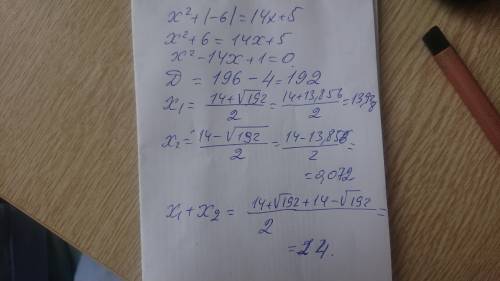 x²+|-6|=14x+5
x²+6=14x+5
x²-14x+1=0
D = 196-4=192
x₁= (14+√192)/2 = (14+13,856)/2 = 13,928
x₂= (14-√192)/2 = (14-13,856)/2 =
=0,072
x₁+x₂= (14+√192+14-√192)/2 =
=14.